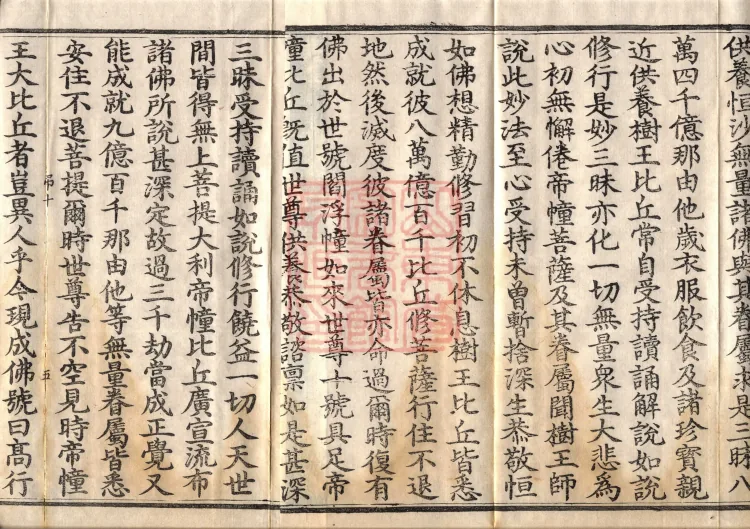 供養恒沙無量諸佛與其眷屬求是三昧八
萬四千億那由他歲衣服飲食及諸珍寶親
近供養樹王比丘常自受持讀誦解說如說
修行是妙三昧亦化一切無量衆生大悲爲
心初無懈倦帝幢菩薩及其眷屬聞樹王師
說此妙法至心受持未曾暫捨深生恭敬恒
如佛想精勤修習初不休息樹王比丘皆悉
成就彼八萬億百千比丘修菩薩行住不退
地然後滅度彼諸眷屬皆亦命過爾時復有
佛出於世號閻浮幢如來世尊十號具足帝
童比丘旣值世尊供養恭敬諮禀如是甚深
三昧受持讀誦如說修行饒益一切人天世
間皆得無上菩提大利帝幢比丘廣宣流布
諸佛所說甚深定故過三千劫當成正覺又
能成就九億百千那由他等無量眷屬皆悉
安住不退菩提爾時世尊告不空見時帝幢
弔十 五
王大比丘者豈異人乎今現成佛號曰高行